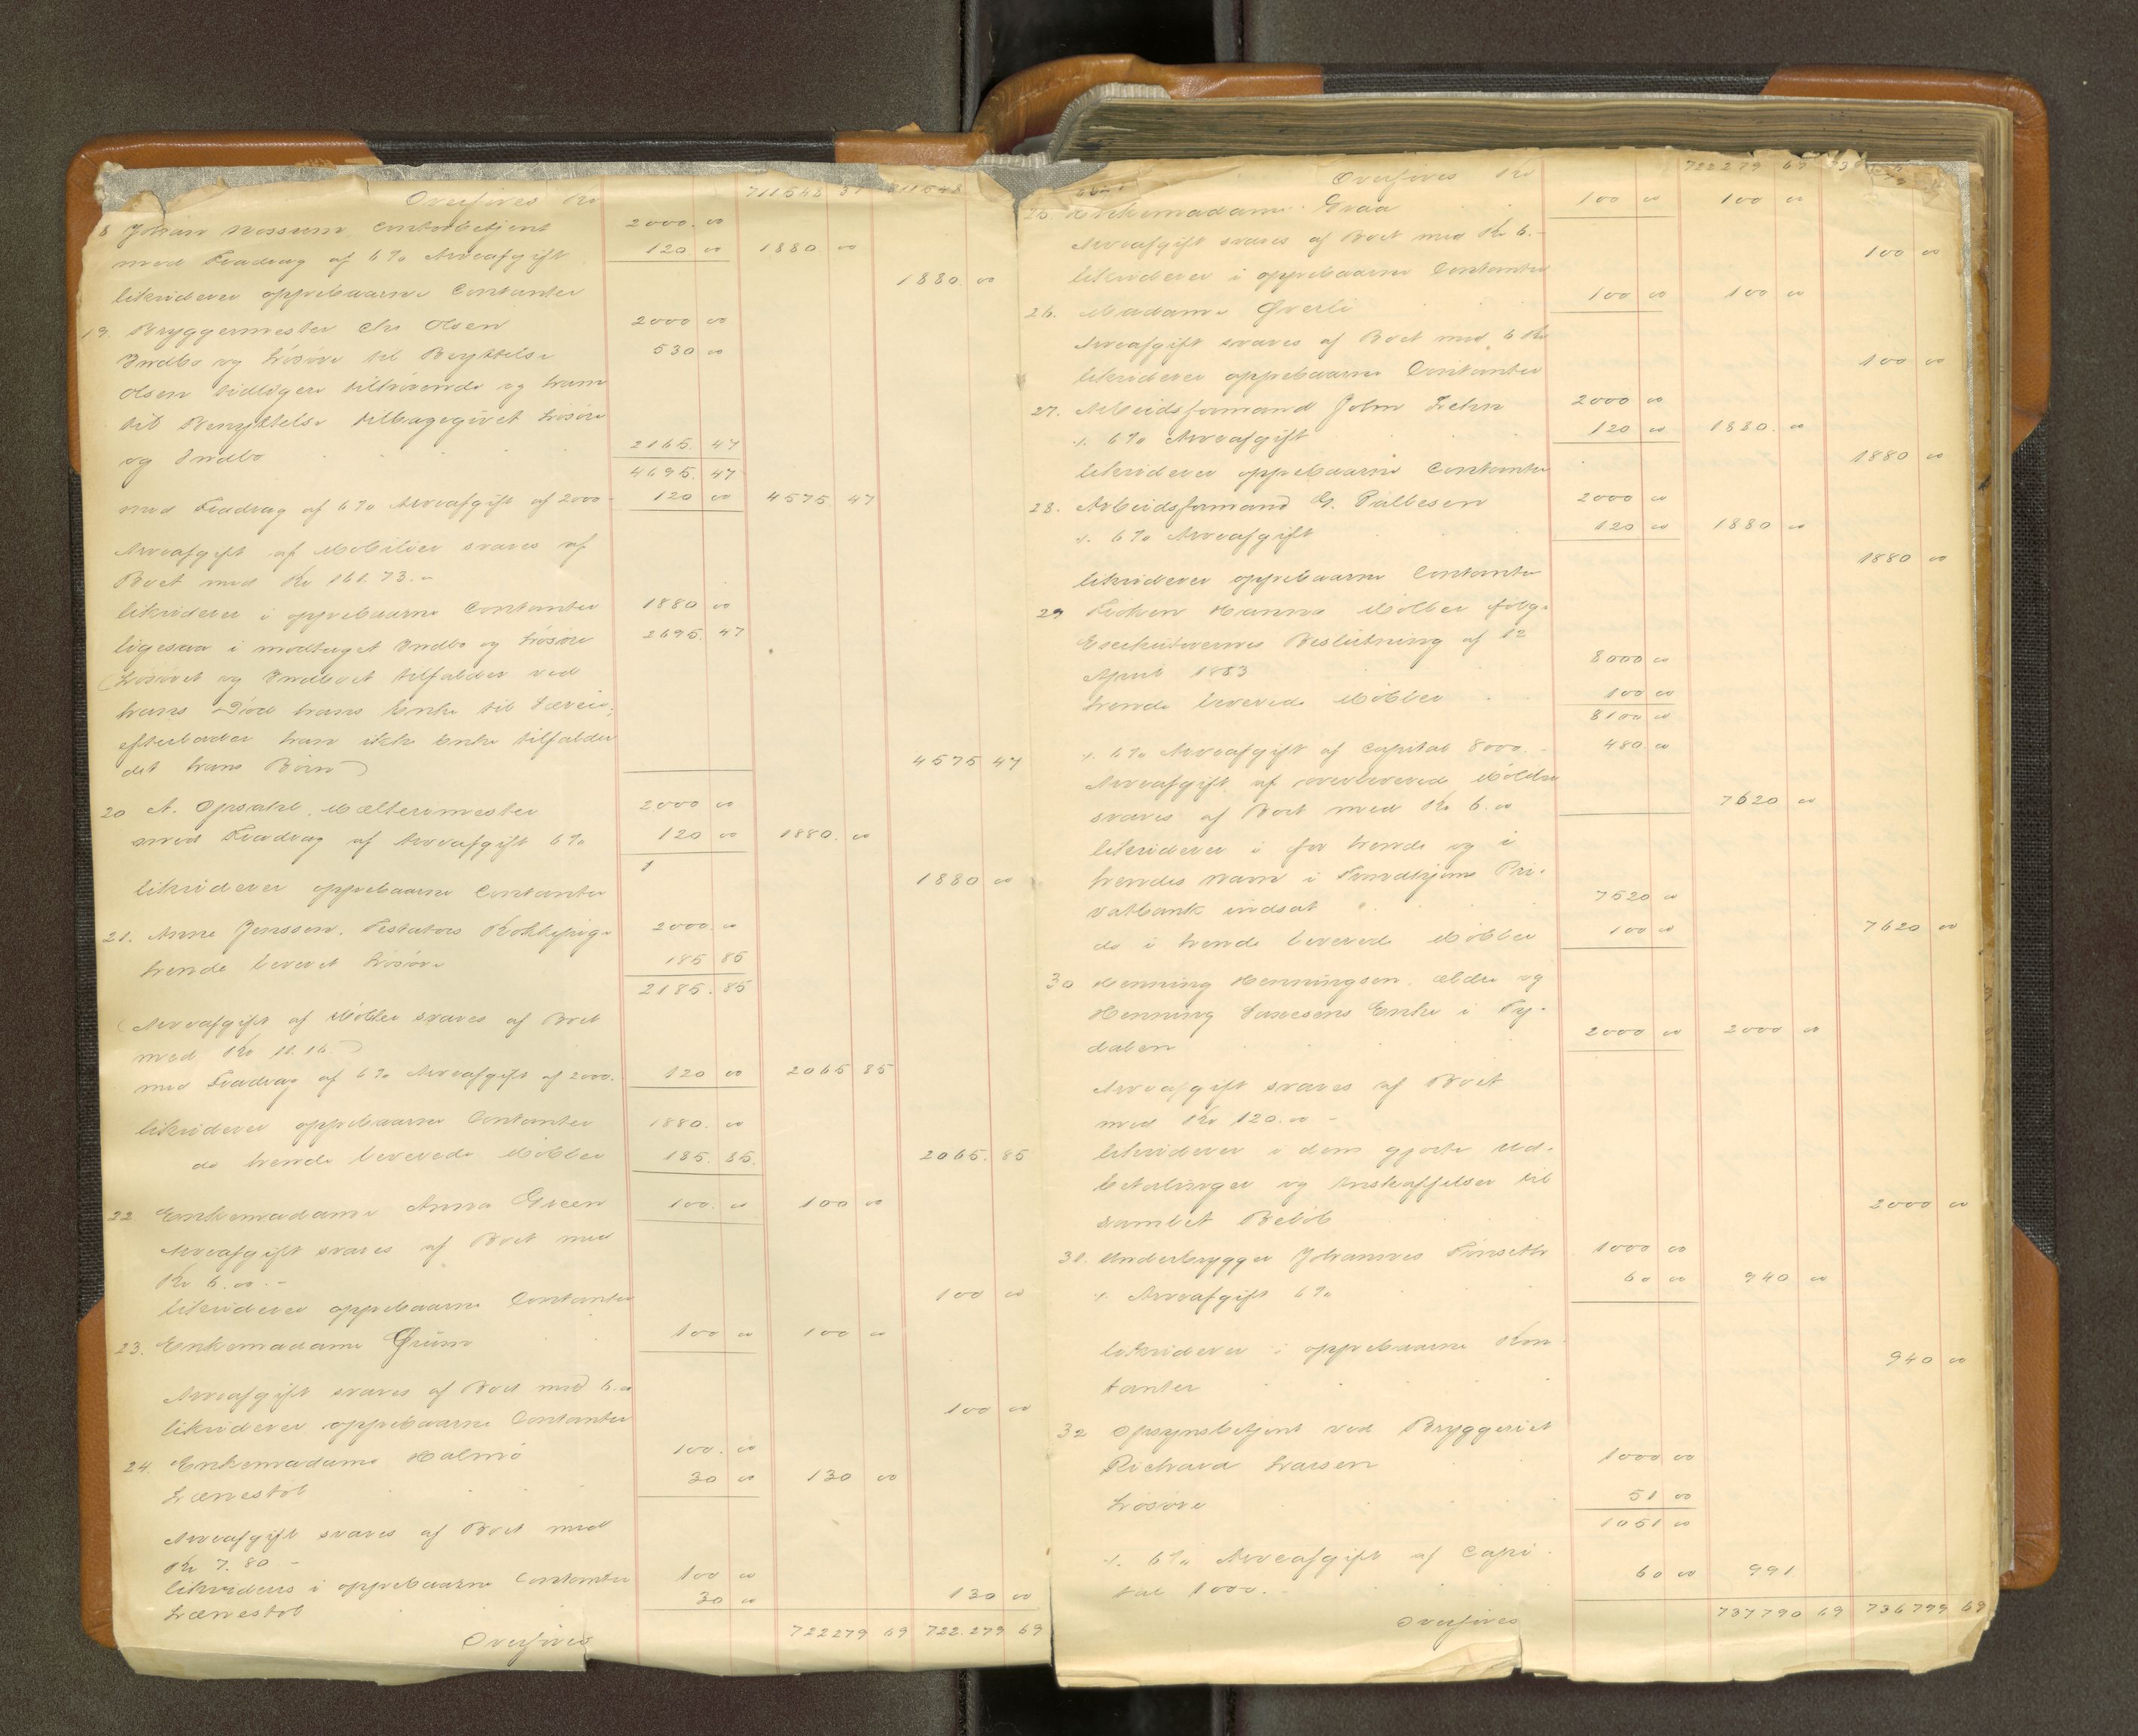 Overføres Kr 711548 37 711548
8 Johan Mossum, Contorbetjent 2000. 00
med Fradrag af 6 % Arveafgift 120 00 1880 00
likviderer oppebaarne Contanter 1880. 00
19. Bryggermester Chr Olsen 2000 00
Indbo og Løsøre til Benyttelse 530 00
Olsen tidligere tilhørende og ham
til Benyttelse tilbagegivet Løsøre
og Indbo 2165. 47
4695. 47
med Fradrag af 6 % Arveafgift af 2000 - 120 00 4575. 47
Arveafgift af Mobilier svares af
Boet med Kr 161. 73. -
likviderer i oppebaarne Contanter 1880 00
ligesaa i modtaget Indbo og Løsøre 2695. 47
(Løsøret og Indboet tilfalder ved
hans Død hans Enke til Særeie;
efterlader han ikke Enke tilfalder
det hans Børn) 4575 47
20 A. Opsahl. Mælterimester 2000 00
med Fradrag af Arveafgift 6 % 120 00 1880. 00
likviderer oppebaarne Contanter 1880 00
21. Anne Jenssen. Testators Kokkepige 2000. 00
hende leveret Løsøre 185 85
2185. 85
(Arveafgift af Møbler svares af Boet
med Kr 11. 16)
med Fradrag af 6 % Arveafgift af 2000. 120 00 2065 85
likviderer oppebaarne Contanter 1880. 00
do hende leverede Møbler 185. 85. 2065. 85
22 Enkemadame Anna Green 100. 00 100 00
Arveafgift svares af Boet med
Kr 6. 00. -
likviderer oppebaarne Contanter 100 00
23. Enkemadame Grüm 100 00 100 00
Arveafgift svares af Boet med 6. 00
likviderer oppebaarne Contanter 100 00
24. Enkemadame Halmø 100. 00
Lænestol 30 00 130 00
Arveafgift svares af Boet med
Kr 7. 80 -
likvideres i oppebaarne Contanter 100 00
Lænestol 30 00 130 00
Overføres 722279 69 722.279 69
Overføres Kr 722279 69
25. Enkemadame Graa 100 00 100 00
Arveafgift svares af Boet med Kr 6. -
likviderer i oppebaarne Contanter 100 00
26. Madame Øverli 100 00 100 00
Arveafgift svares af Boet med 6 Kr
likviderer oppebaarne Contanter 100 00
27. Arbeidsformand John Lehn 2000 00
÷ 6 % Arveafgift 120 00 1880. 00
likviderer oppebaarne Contanter 1880 00
28. Arbeidsformand G. Pallesen 2000 00
÷ 6 % Arveafgift 120 00 1880 00
likviderer oppebaarne Contanter 1880 00
29 Frøken Hanna Møller følge
Executorernes Beslutning af 12
April 1883 8000 00
hende leverede Møbler 100 00
8100 00
÷ 6 % Arveafgift af Capital 8000. - 480. 00
Arveafgift af overleverede Møbler
svares af Boet med Kr 6. 00 7620 00
likviderer i for hende og i
hendes Navn i Trondhjems Pri-
vatbank indsat 7520 00
do i hende leverede Møbler 100 00 7620 00
30 Henning Henningsen ældre og
Henning Larsens Enke i Ty-
dalen 2000 00 2000 00
Arveafgift svares af Boet
med Kr 120. 00 -
likviderer i dem gjorte Ud-
betalinger og Anskaffelser til
samlet Beløb 2000 00
31. Underbrygger Johannes Tønseth 1000 00
÷ Arveafgift 6 % 60 00 940 00
likviderer i oppebaarne Kon-
tanter 940 00
32 Opsynsbetjent ved Bryggeriet
Richard Larsen 1000 00
Løsøre 51 00
1051 00
÷ 6 % Arveafgift af Capi-
tal 1000. 60 00 991
Overføres 737790 69 736799 69